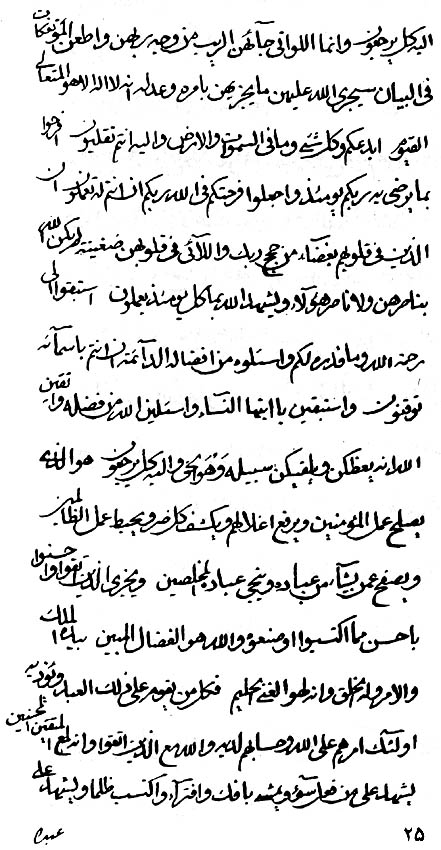 اليه كل يرجعون وانما اللواتي جآئهن الريب من وجه ربهن واطعن المؤتفكات
في البيان سيجزي الله عليهن ما يجزيهن بامره وعدله انه لا اله الا هو المتعالي
القيوم ابدعكم وكل شيء وما في السموات والارض واليه انتم تقلبون افرحوا
بما يرضى به ربكم يومئذ واجعلوا فرحتكم في الله ربكم ان انتم تعملون ان
الذين في قلوبهم بغضآء من حجج ربك واللآئي في قلوبهن ضغينة لم يكن الله
بناصرهن ولا ناصر هؤلآء ويشهد الله بما كل يومئذ يعملون استبقوا الى
رحمة الله وما قدره لكم واسئلوه من افضاله الدآئمة ان انتم باسمآئه
توقنون واستبقين يا ايتها النسآء واسئلين الله من فضله واتقين
الله انه يعظكن ويلقيكن سبيله وهو الحق واليه كل يرجعون هو الذي
يصلح عمل المؤمنين ويرفع اغلالهم ويكشف كل ضر ويحيط عمل الظالمين
ويصفح عمن يشآء من عباده وينجي عباده المخلصين ويجزي الذين اتقوا واحسنوا
باحسن مما اكتسبوا او صنعوا والله هو الفضال المبين بيده الملك
والامر وله الخلق وانه لهو الغني الحليم فكل من يقوم على ذلك العبد ويؤذيه
اولئك امرهم على الله وحسابهم لديه والله مع الذين اتقوا وانه مع المتقين المحسنين
يشهد على من فعل سوء ويشهد بافك وافترآء واكتسب ظلما ويشهد على
٢٥
عبده